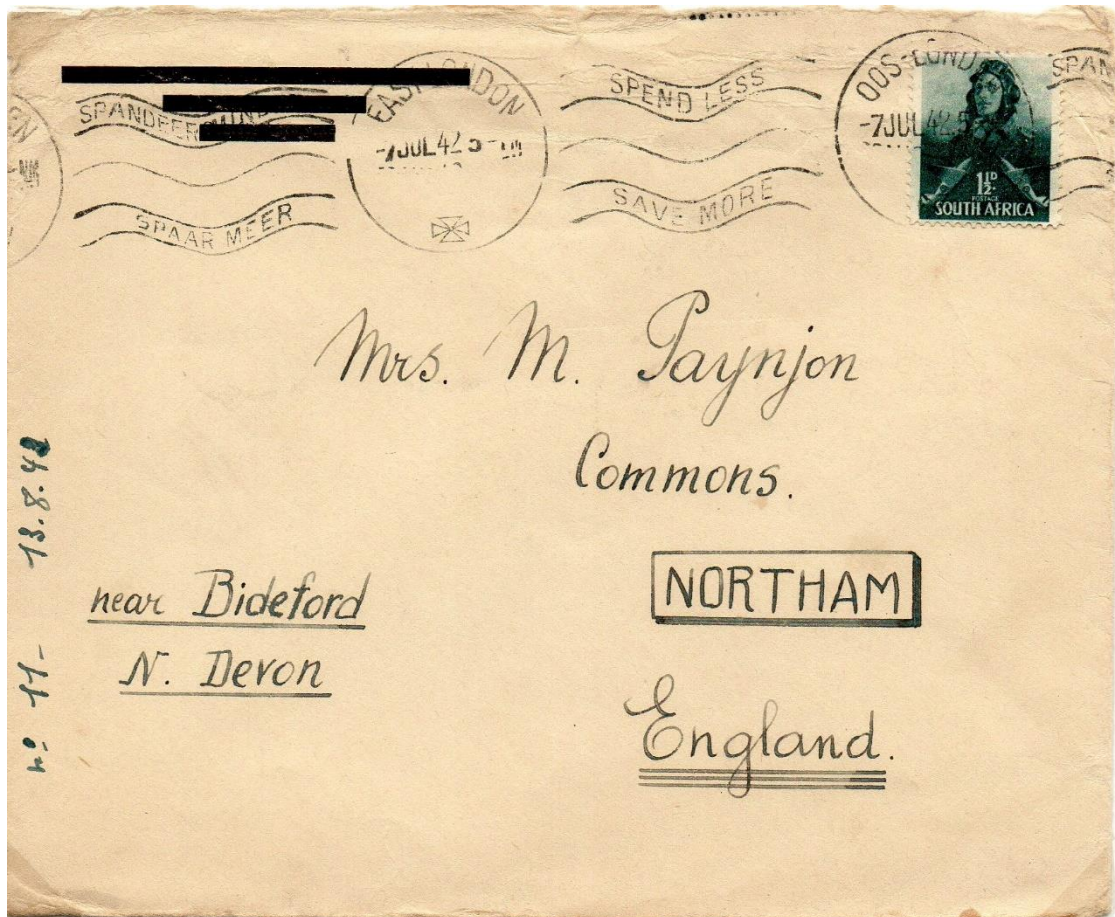 SPANDEER MIN
SPAAR MEER
EAST LONDON
-7 JUL 42 5-
SPEND LESS
SAVE MORE
OOS-LONDEN
-7 JUL 42 5
SPAN
1½D
POSTAGE
SOUTH AFRICA
Mrs. M. Paynjon
Commons.
NORTHAM
England.
near Bideford
N. Devon
no 11- 13.8.42